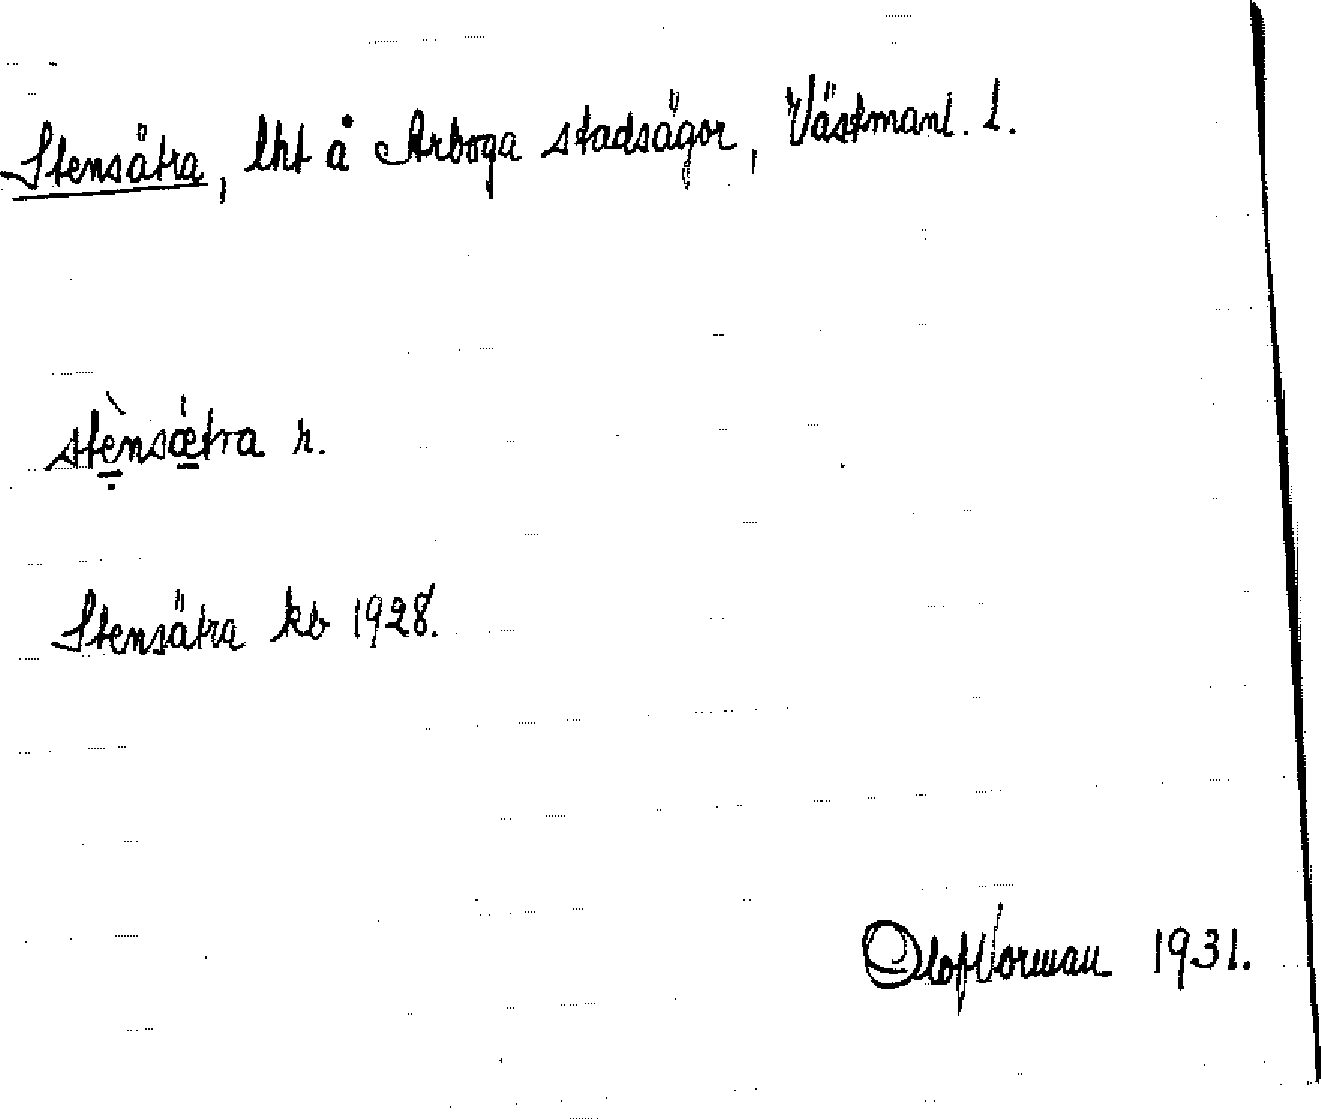 Stensätra, lht å Arboga stadsägor, Västmanl. l.
stè̱̣nsǽ̱tra r.
Stensätra kb 1928.
Olof Norman 1931.